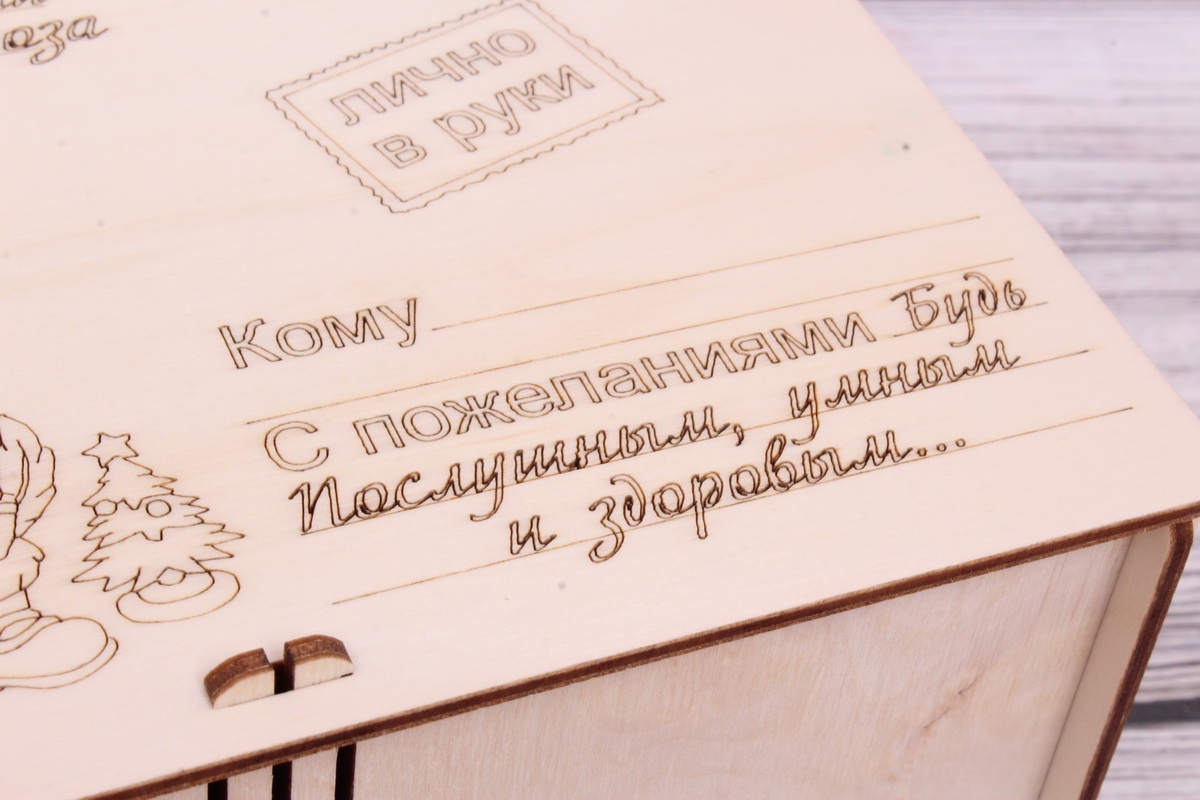 лично
в руки
Кому
С пожеланиями Будь
Послушным, умным
и здоровым...